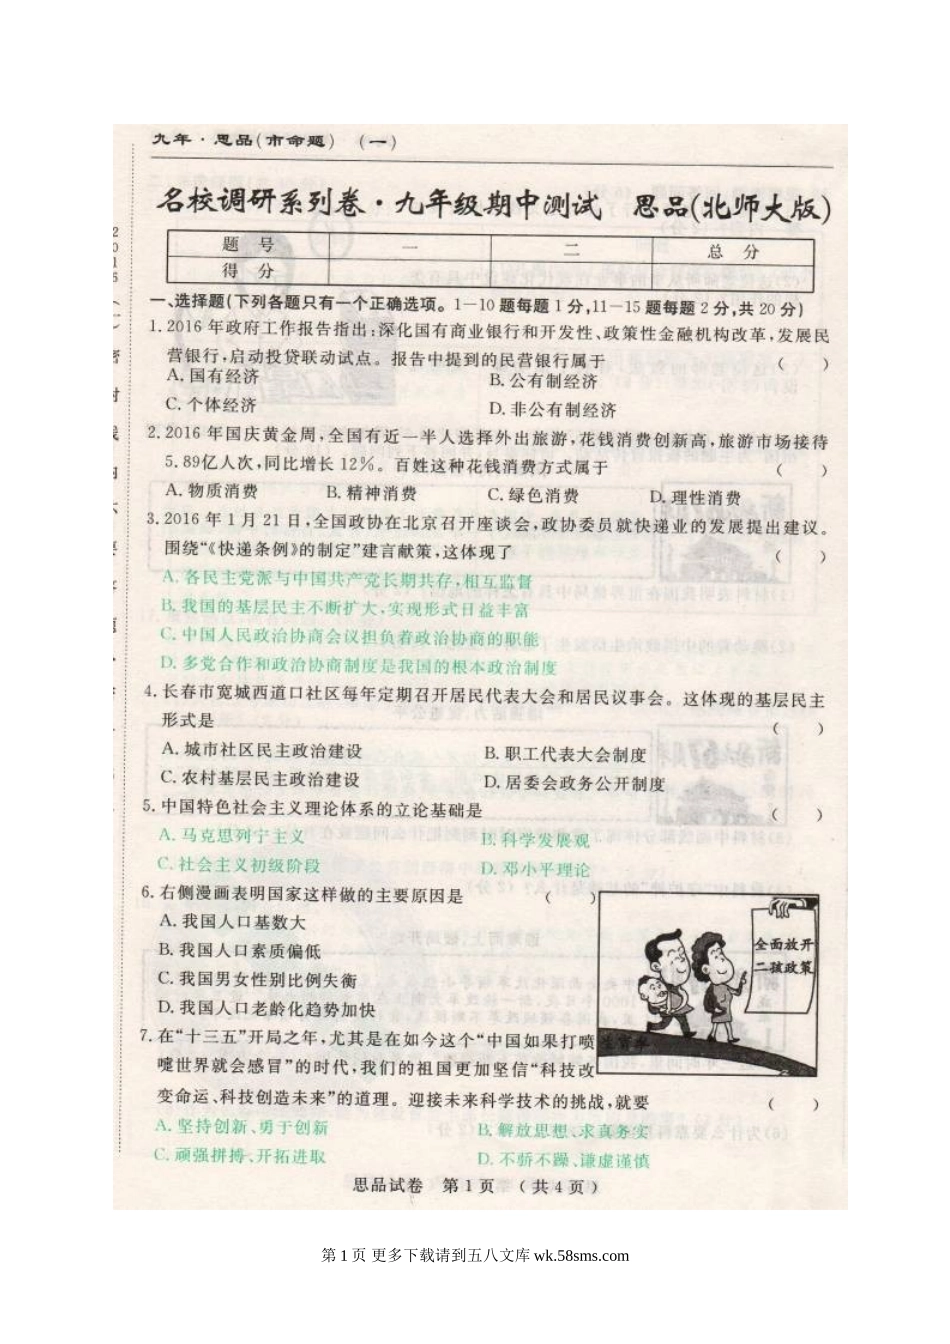 九年·思品(市命题) (一)
名校调研系列卷·九年级期中测试 思品(北师大版)
题 号 一 二 总 分
得 分
一、选择题(下列各题只有一个正确选项。1—10题每题1分,11—15题每题2分,共20分)
1.2016年政府工作报告指出:深化国有商业银行和开发性、政策性金融机构改革,发展民
营银行,启动投贷联动试点。报告中提到的民营银行属于 ( )
A.国有经济 B.公有制经济
C.个体经济 D.非公有制经济
2.2016年国庆黄金周,全国有近一半人选择外出旅游,花钱消费创新高,旅游市场接待
5.89亿人次,同比增长12%。百姓这种花钱消费方式属于 ( )
A.物质消费 B.精神消费 C.绿色消费 D.理性消费
3.2016年1月21日,全国政协在北京召开座谈会,政协委员就快递业的发展提出建议。
围绕“《快递条例》的制定”建言献策,这体现了 ( )
A.各民主党派与中国共产党长期共存,相互监督
B.我国的基层民主不断扩大,实现形式日益丰富
C.中国人民政治协商会议担负着政治协商的职能
D.多党合作和政治协商制度是我国的根本政治制度
4.长春市宽城西道口社区每年定期召开居民代表大会和居民议事会。这体现的基层民主
形式是 ( )
A.城市社区民主政治建设 B.职工代表大会制度
C.农村基层民主政治建设 D.居委会政务公开制度
5.中国特色社会主义理论体系的立论基础是 ( )
A.马克思列宁主义 B.科学发展观
C.社会主义初级阶段 D.邓小平理论
6.右侧漫画表明国家这样做的主要原因是 ( )
A.我国人口基数大
B.我国人口素质偏低
C.我国男女性别比例失衡
D.我国人口老龄化趋势加快
全面放开
二孩政策
7.在“十三五”开局之年,尤其是在如今这个“中国如果打喷
嚏世界就会感冒”的时代,我们的祖国更加坚信“科技改
变命运、科技创造未来”的道理。迎接未来科学技术的挑战,就要 ( )
A.坚持创新、勇于创新 B.解放思想、求真务实
C.顽强拼搏、开拓进取 D.不骄不躁、谦虚谨慎
思品试卷 第1页 (共4页)
第 1 页 更多下载请到五八文库 wk.58sms.com